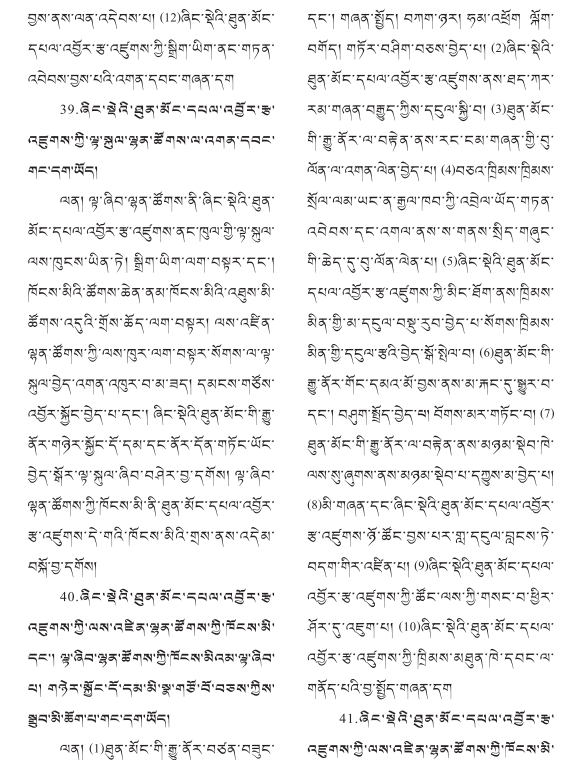 བྱས་ནས་ལན་འདེབས་པ། (12)ཞིང་སྡེའི་ཐུན་མོང་
དཔལ་འབྱོར་རྩ་འཛུགས་ཀྱི་སྒྲིག་ཡིག་ནང་གཏན་
འབེབས་བྱས་པའི་འགན་དབང་གཞན་དག
39.ཞིང་སྡེའི་ཐུན་མོང་དཔལ་འབྱོར་རྩ་
འཛུགས་ཀྱི་ལྟ་སྐུལ་ལྷན་ཚོགས་ལ་འགན་དབང་
གང་དག་ཡོད།
ལན། ལྟ་ཞིབ་ལྷན་ཚོགས་ནི་ཞིང་སྡེའི་ཐུན་
མོང་དཔལ་འབྱོར་རྩ་འཛུགས་ནང་ཁུལ་གྱི་ལྟ་སྐུལ་
ལས་ཁུངས་ཡིན་ཏེ། སྒྲིག་ཡིག་ལག་བསྟར་དང་།
ཁོངས་མིའི་ཚོགས་ཆེན་ནམ་ཁོངས་མིའི་འཐུས་མི་
ཚོགས་འདུའི་གྲོས་ཆོད་ལག་བསྟར། ལས་འཛིན་
ལྷན་ཚོགས་ཀྱི་ལས་ཁུར་ལག་བསྟར་སོགས་ལ་ལྟ་
སྐུལ་བྱེད་འགན་འཁུར་བ་མ་ཟད། དམངས་གཙོས་
འབྱོར་སྐྱོང་བྱེད་པ་དང་། ཞིང་སྡེའི་ཐུན་མོང་གི་རྒྱུ་
ནོར་གཉེར་སྐྱོང་དོ་དམ་དང་ནོར་དོན་གཏོང་ཡོང་
བྱེད་སྒོར་ལྟ་སྐུལ་ཞིབ་བཤེར་བྱ་དགོས། ལྟ་ཞིབ་
ལྷན་ཚོགས་ཀྱི་ཁོངས་མི་ནི་ཐུན་མོང་དཔལ་འབྱོར་
རྩ་འཛུགས་དེ་གའི་ཁོངས་མིའི་གྲས་ནས་འདེམ་
བསྐོ་བྱ་དགོས།
40.ཞིང་སྡེའི་ཐུན་མོང་དཔལ་འབྱོར་རྩ་
འཛུགས་ཀྱི་ལས་འཛིན་ལྷན་ཚོགས་ཀྱི་ཁོངས་མི་
དང་། ལྟ་ཞིབ་ལྷན་ཚོགས་ཀྱི་ཁོངས་མིའམ་ལྟ་ཞིབ་
པ། གཉེར་སྐྱོང་དོ་དམ་མི་སྣ་གཙོ་བོ་བཅས་ཀྱིས་
སྒྲུབ་མི་ཆོག་པ་གང་དག་ཡོད།
ལན། (1)ཐུན་མོང་གི་རྒྱུ་ནོར་བཙན་བཟུང་
དང་། གཞན་སྤྲོད། བཀག་ཉར། ཧམ་འཕྲོག ལྐོག་
བགོད། གཏོར་བཤིག་བཅས་བྱེད་པ། (2)ཞིང་སྡེའི་
ཐུན་མོང་དཔལ་འབྱོར་རྩ་འཛུགས་ནས་ཐད་ཀར་
རམ་གཞན་བརྒྱུད་ཀྱིས་དངུལ་སྐྱི་བ། (3)ཐུན་མོང་
གི་རྒྱུ་ནོར་ལ་བརྟེན་ནས་རང་ངམ་གཞན་གྱི་བུ་
ལོན་ལ་འགན་ལེན་བྱེད་པ། (4)བཅའ་ཁྲིམས་ཁྲིམས་
སྲོལ་ལམ་ཡང་ན་རྒྱལ་ཁབ་ཀྱི་འབྲེལ་ཡོད་གཏན་
འབེབས་དང་འགལ་ནས་ས་གནས་སྲིད་གཞུང་
གི་ཆེད་དུ་བུ་ལོན་ལེན་པ། (5)ཞིང་སྡེའི་ཐུན་མོང་
དཔལ་འབྱོར་རྩ་འཛུགས་ཀྱི་མིང་ཐོག་ནས་ཁྲིམས་
མིན་གྱི་མ་དངུལ་བསྡུ་རུབ་བྱེད་པ་སོགས་ཁྲིམས་
མིན་གྱི་དངུལ་རྩའི་བྱེད་སྒོ་སྤེལ་བ། (6)ཐུན་མོང་གི་
རྒྱུ་ནོར་གོང་དམའ་མོ་བྱས་ནས་མ་རྐང་དུ་སྒྱུར་བ་
དང་། བཤུག་སྤྲོད་བྱེད་པ། བོགས་མར་གཏོང་བ། (7)
ཐུན་མོང་གི་རྒྱུ་ནོར་ལ་བརྟེན་ནས་མཉམ་སྡེབ་ཁེ་
ལས་སུ་ཞུགས་ནས་མཉམ་སྡེབ་པ་དཀྱུས་མ་བྱེད་པ།
(8)མི་གཞན་དང་ཞིང་སྡེའི་ཐུན་མོང་དཔལ་འབྱོར་
རྩ་འཛུགས་ཉོ་ཚོང་བྱས་པར་གླ་དངུལ་བླངས་ཏེ་
བདག་གིར་འཛིན་པ། (9)ཞིང་སྡེའི་ཐུན་མོང་དཔལ་
འབྱོར་རྩ་འཛུགས་ཀྱི་ཚོང་ལས་ཀྱི་གསང་བ་ཕྱིར་
ཤོར་དུ་འཇུག་པ། (10)ཞིང་སྡེའི་ཐུན་མོང་དཔལ་
འབྱོར་རྩ་འཛུགས་ཀྱི་ཁྲིམས་མཐུན་ཁེ་དབང་ལ་
གནོད་པའི་བྱ་སྤྱོད་གཞན་དག
41.ཞིང་སྡེའི་ཐུན་མོང་དཔལ་འབྱོར་རྩ་
འཛུགས་ཀྱི་ལས་འཛིན་ལྷན་ཚོགས་ཀྱི་ཁོངས་མི་